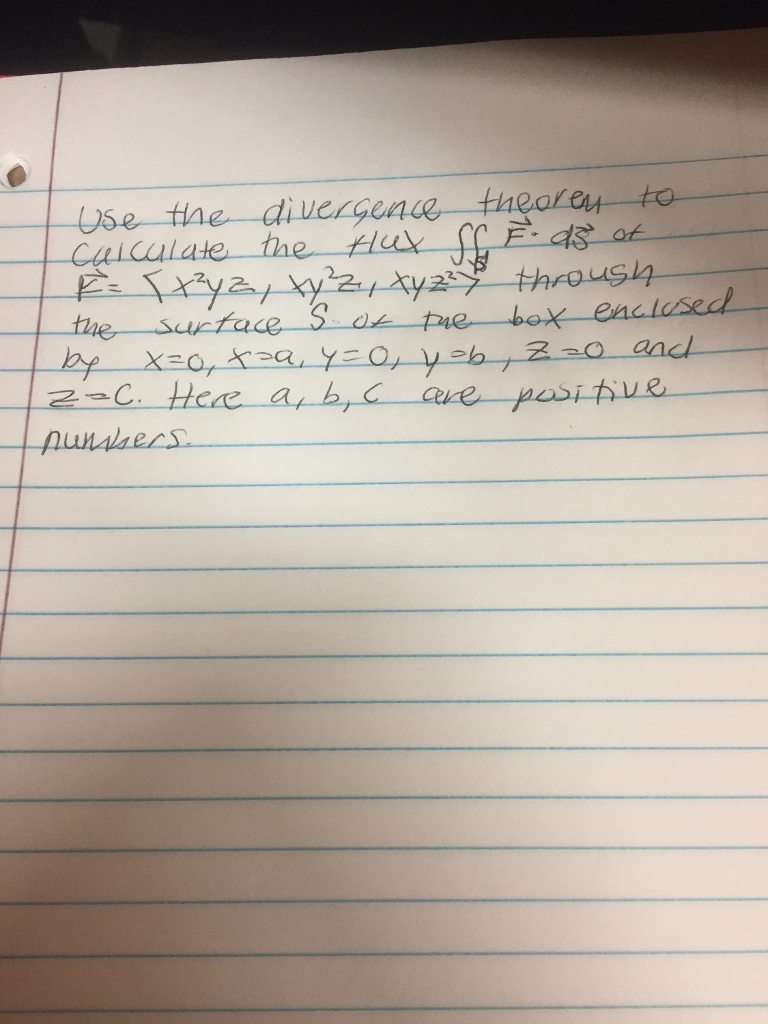 Use the divergence theorem to
calculate the flux ∬_S F⃗ · dS⃗ of
F⃗ = ⟨x²yz, xy²z, xyz²⟩ through
the surface S of the box enclosed
by x=0, x=a, y=0, y=b, z=0 and
z=c. Here a, b, c are positive
numbers.